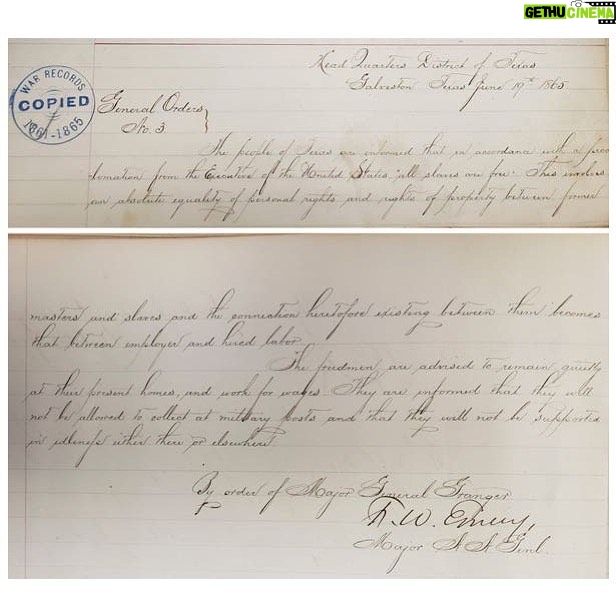 GETHU CINEMA
Head Quarters District of Texas
Galveston Texas June 19th 1865
WAR RECORDS
COPIED
1861-1865
General Orders
No. 3
The people of Texas are informed that in accordance with a proc
lamation from the Executive of the United States, "all slaves are free." This involves
an absolute equality of personal rights and rights of property between former
masters and slaves and the connection heretofore existing between them becomes
that between employer and hired labor.
The freedmen are advised to remain quietly
at their present homes, and work for wages. They are informed that they will
not be allowed to collect at military posts and that they will not be supported
in idleness either there or elsewhere
By order of Major General Granger
F. W. Emery,
Major A A Genl.